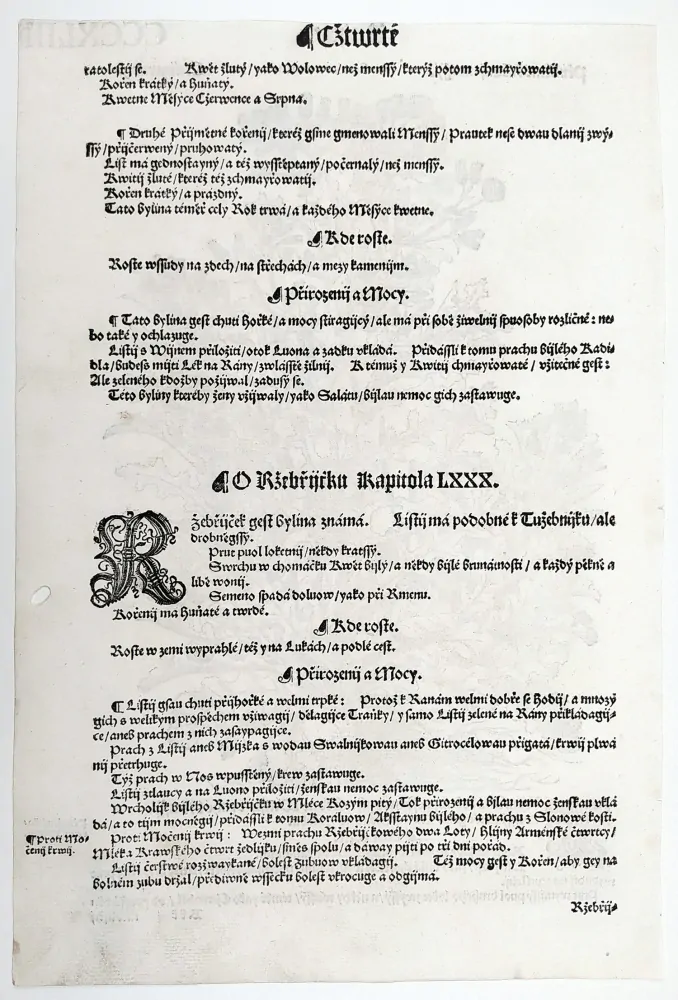 ¶ Cžtwrté
ratolestij se. Kwět žlutý/yako Wolowec/než menssý/kterýž potom zchmayřowatij.
Kořen krátký/a huňatý.
Kwetne Měsyce Cžerwence a Srpna.
¶ Druhé Přijmětné kořenij/kteréž gsme gmenowali Menssý/ Prautek nese dwau dlanij zwý-
ssý/přijčerwený/pruhowatý.
List má gednostayný/a též wysstěptaný/počernalý/než menssý.
Kwitij žluté/kteréž též zchmayřowatij.
Kořen krátký/a prázdný.
Tato bylina téměř celý Rok trwá/a každého Měsýce kwetne.
¶ Kde roste.
Roste wssudy na zdech/na střechách/a mezy kamenijm.
¶ Přirozenij a Mocy.
¶ Tato bylina gest chuti hořké/a mocy stiragijcý/ale má při sobě žiwelnij spuosoby rozličné: ne-
bo také y ochlazuge.
Listij s Wijnem přiložiti/otok Luona a zadku vkládá. Přidásli k tomu prachu bijlého Kadi-
dla/budess mijti Lék na Rány/zwlásstě žilnij. K témuž y Kwitij chmayřowaté/ vžitečné gest:
Ale zeleného kdožby požijwal/zadusý se.
Této byliny kteréby ženy vžijwaly/yako Salátu/bijlau nemoc gich zastawuge.
¶ O Ržebřijčku Kapitola LXXX.
Ržebřijček gest bylina známá. Listij má podobné k Tužebnijku/ale
drobněgssý.
Prut puol loketnij/někdy kratssý.
Swrchu w chomáčku Kwět bijlý/a někdy bijlé brunátnosti/ a každý pěkně a
libě wonij.
Semeno spadá doluow/yako při Rmenu.
Kořenij má huňaté a twrdé.
¶ Kde roste.
Roste w zemi wyprahlé/též y na Lukách/a podlé cest.
¶ Přirozenij a Mocy.
¶ Listij gsau chuti přijhořké a welmi trpké: Protož k Ranám welmi dobře se hodij/ a mnozý
gich s welikým prospěchem vžiwagij/ dělagijce Traňky/ y samo Listij zelené na Rány přikládagij-
ce/aneb prachem z nich zasaypagijce.
Prach z Listij aneb Mijzka s wodau Swalnijkowau aneb Gitrocélowau přigatá/krwij plwá
nij přetrhuge.
Týž prach w Nos wpusstěný/krew zastawuge.
Listij ztlaucy a na Luono přiložiti/ženskau nemoc zastawuge.
Wrcholijk bijlého Ržebřijčku w Mléce Kozým pitý/Tok přirozenij a bijlau nemoc ženskau vklá
dá/a to tijm mocněgij/přidásli k tomu Koraluow/Akstaynu bijlého/ a prachu z Slonowé kosti.
¶ Proti Mo-
čenij krwij.
Proti Močenij krwij: Wezmi prachu Ržebřijčkowého dwa Loty/ Hlijny Arménské čtwrtcy/
Mléka Krawského čtwrt žeydlijku/směs spolu/a dáway pijti po tři dni pořád.
Listij čerstwé rozžwaykané/bolest zubuow vkládagij. Též mocy gest y Kořen/aby gey na
bolném zubu držal/přediwně wssecku bolest vkrocuge a odgijmá.
Ržebřij-